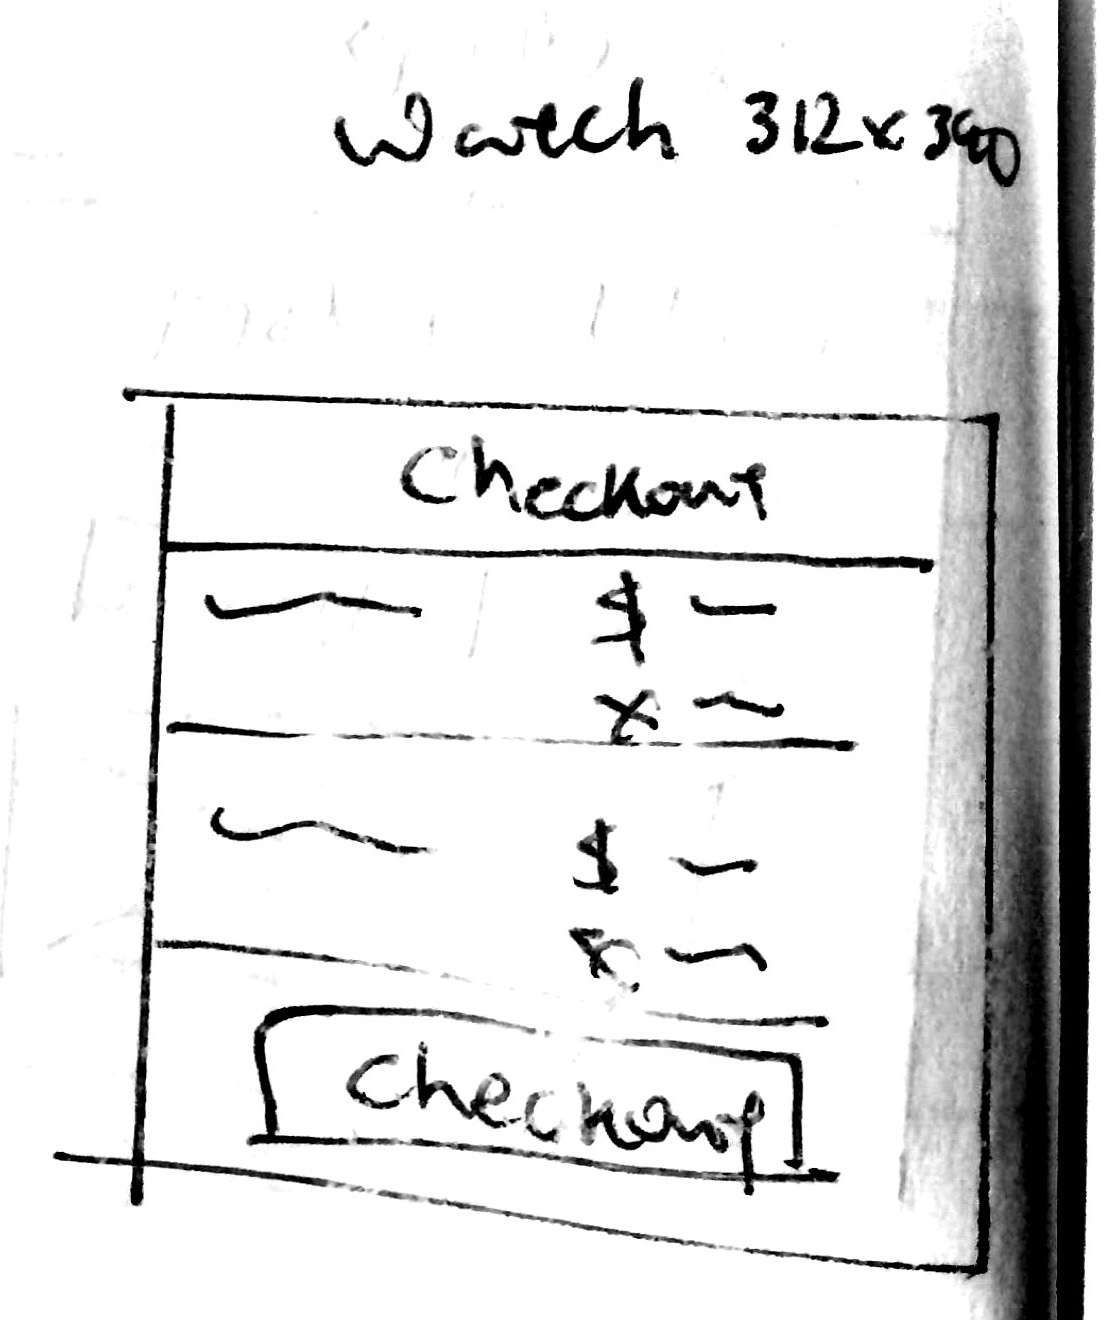 Watch 312x390
Checkout
$
x
$
x
Checkout